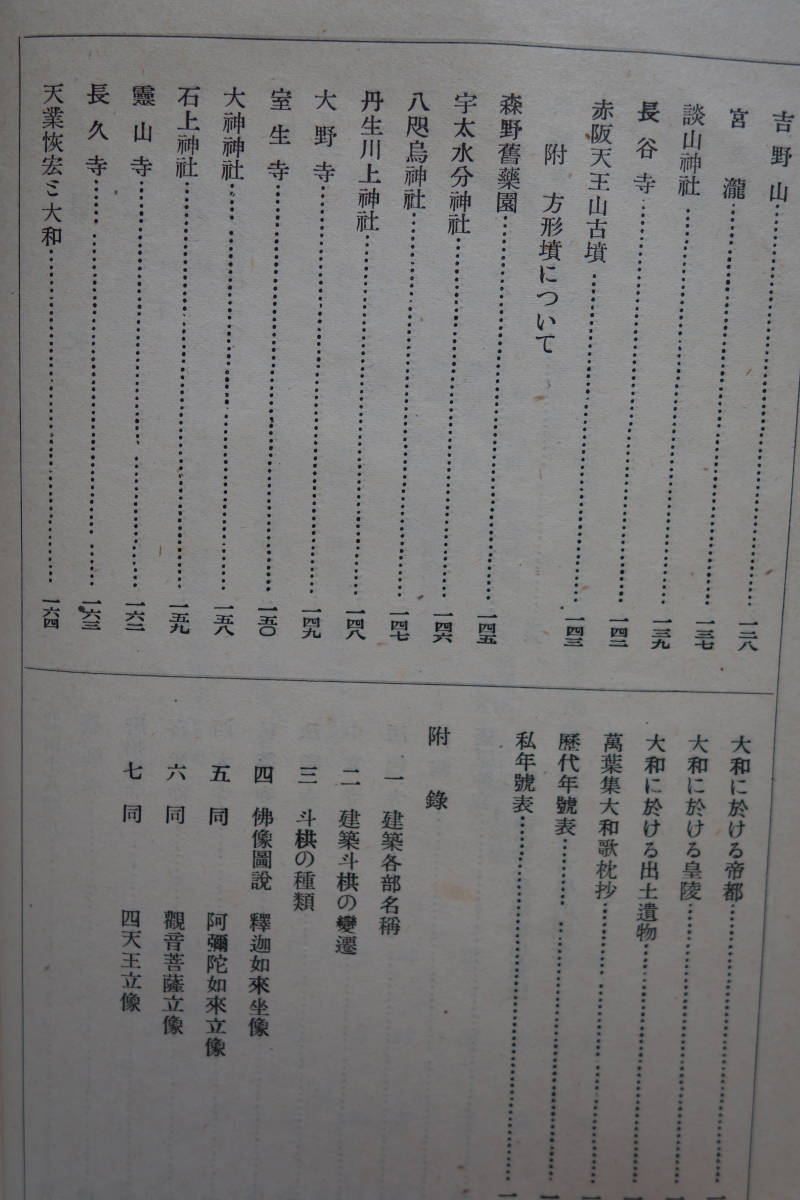 吉野山……一二八
宮瀧……一三七
談山神社……一三九
長谷寺……一四二
赤阪天王山古墳……一四三
附 方形墳について
森野舊藥園……一四五
宇太水分神社……一四六
八咫烏神社……一四七
丹生川上神社……一四八
大野寺……一四九
室生寺……一五〇
大神神社……一五八
石上神社……一五九
靈山寺……一六二
長久寺……一六三
天業恢宏と大和……一六四
大和に於ける帝都……
大和に於ける皇陵……
大和に於ける出土遺物……
萬葉集大和歌枕抄……
歷代年號表……
私年號表……
附錄
一 建築各部名稱
二 建築斗栱の變遷
三 斗栱の種類
四 佛像圖說 釋迦如來坐像
五 同 阿彌陀如來立像
六 同 觀音菩薩立像
七 同 四天王立像